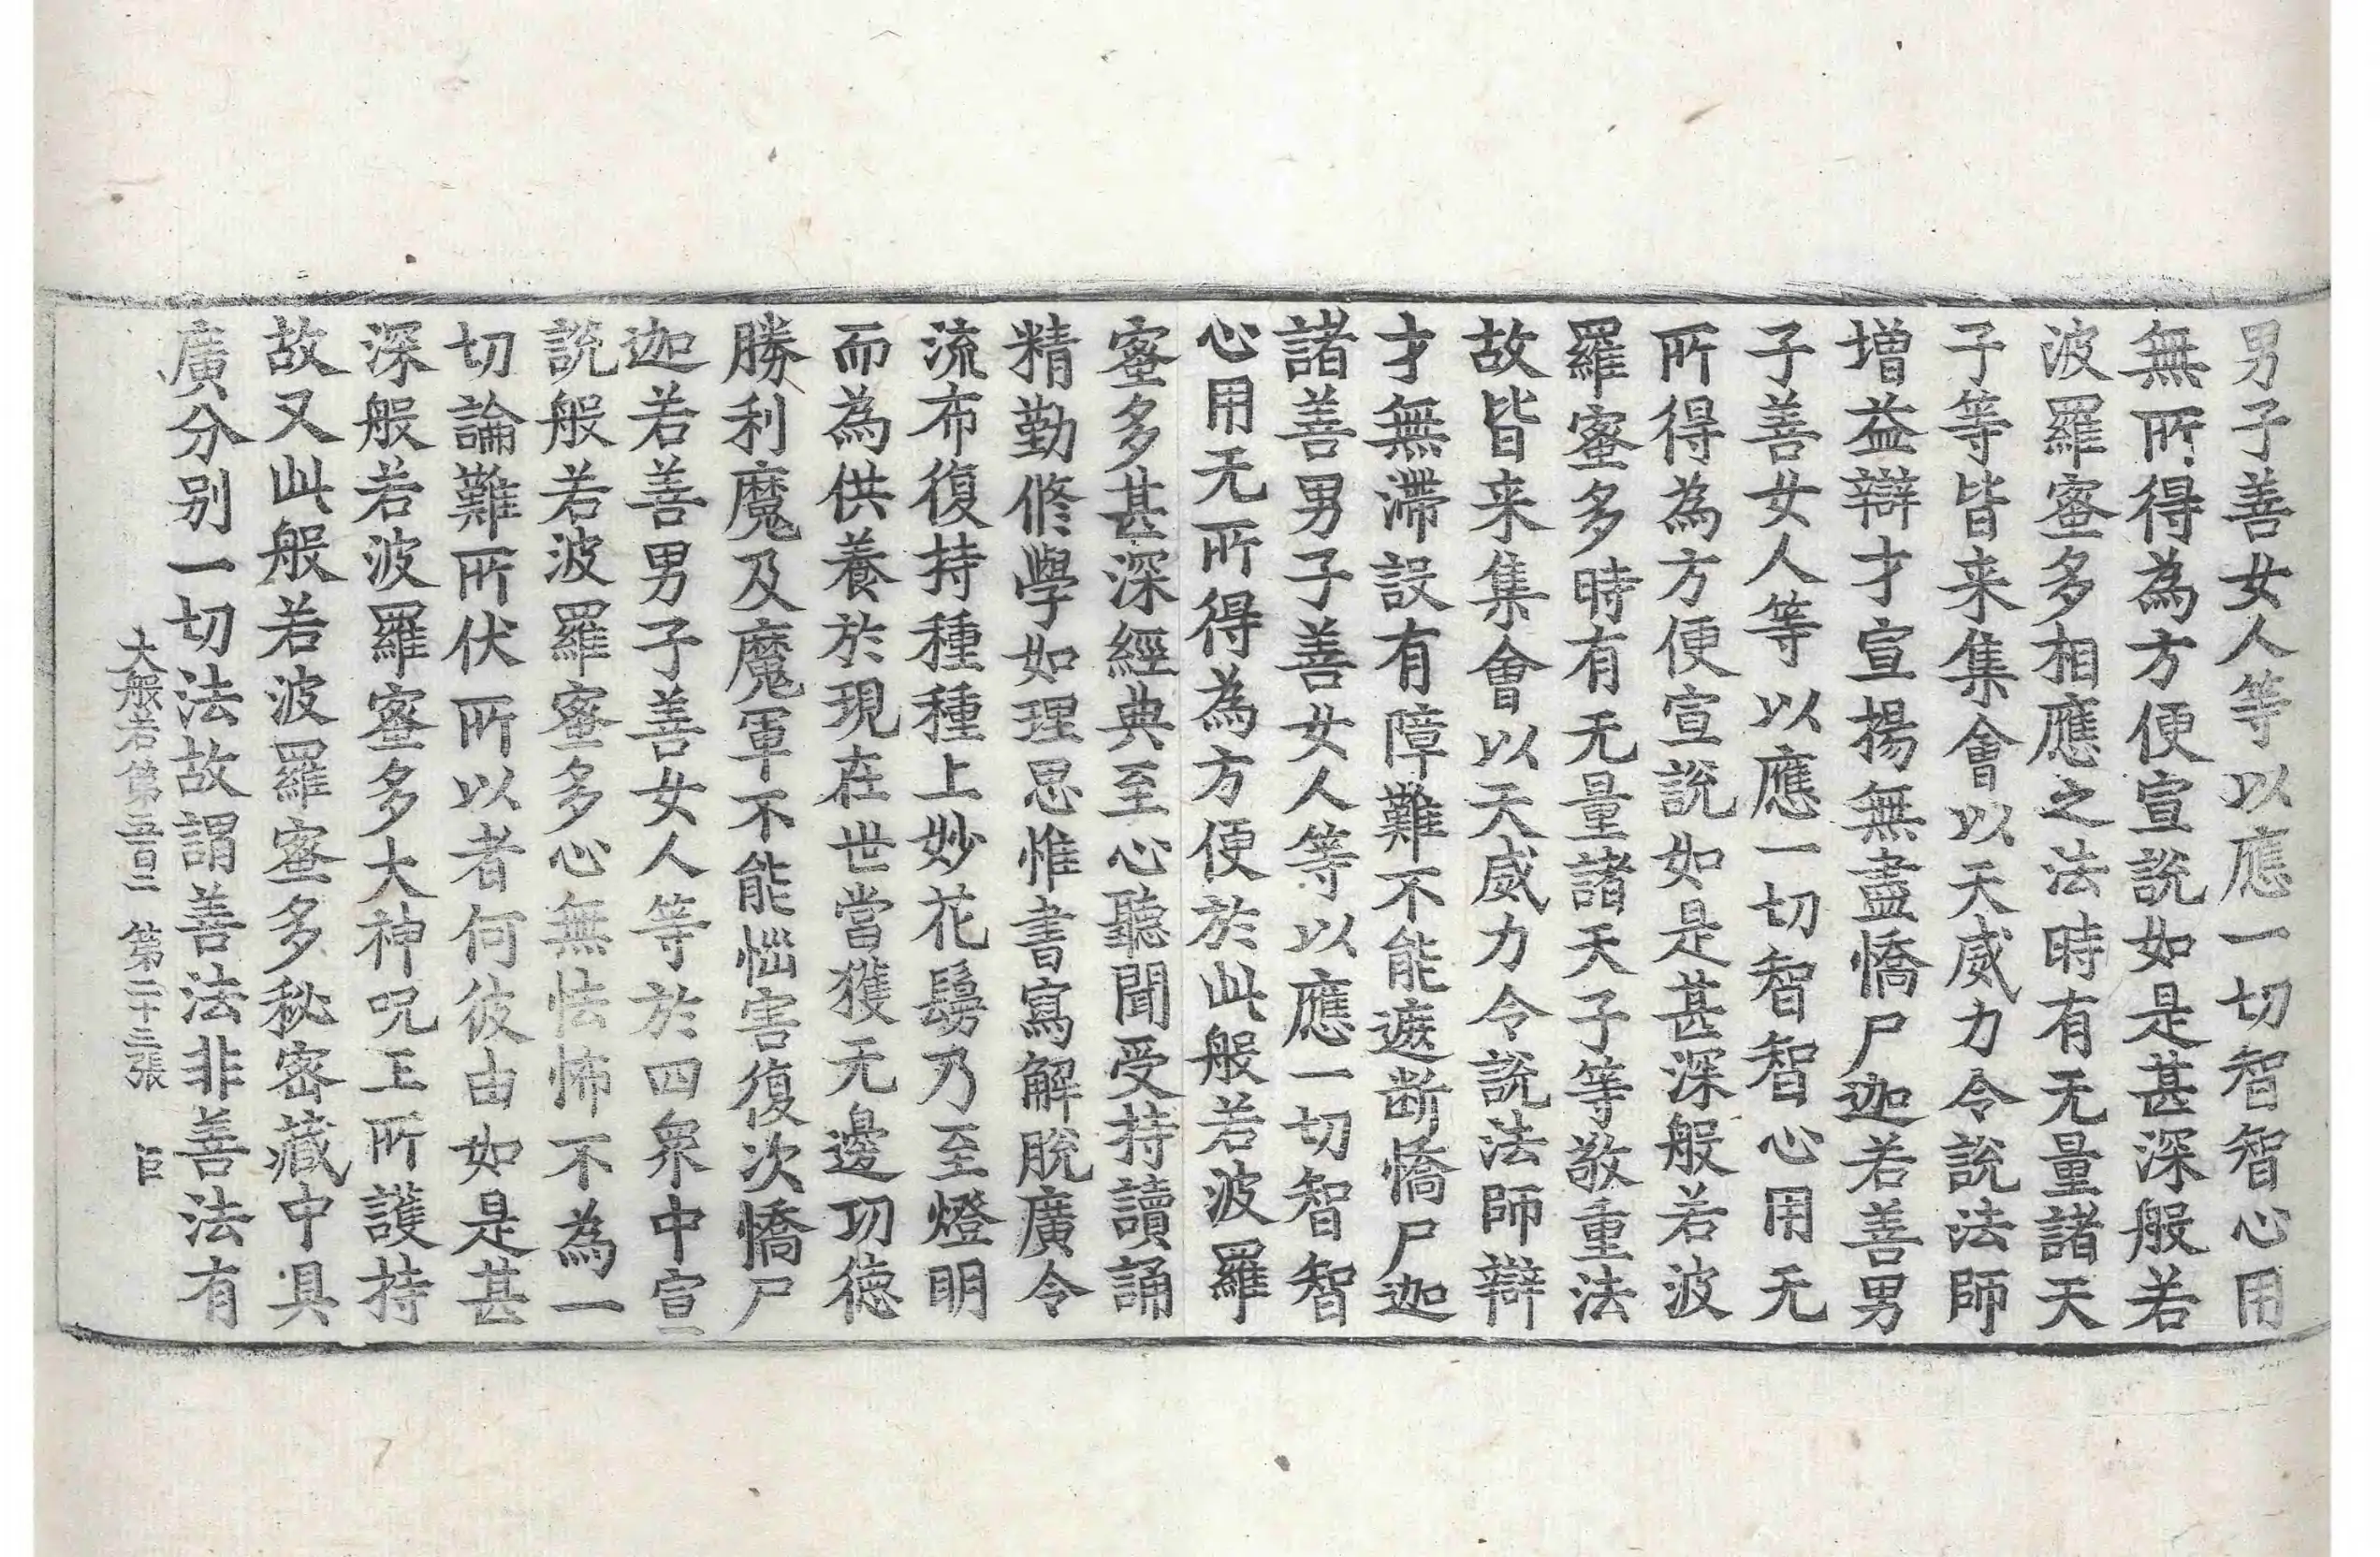 男子善女人等以應一切智智心用
無所得為方便宣說如是甚深般若
波羅蜜多相應之法時有无量諸天
子等皆来集會以天威力令說法師
增益辯才宣揚無盡憍尸迦若善男
子善女人等以應一切智智心用无
所得為方便宣說如是甚深般若波
羅蜜多時有无量諸天子等敬重法
故皆来集會以天威力令說法師辯
才無滯設有障難不能遮断憍尸迦
諸善男子善女人等以應一切智智
心用无所得為方便於此般若波羅
蜜多甚深經典至心聽聞受持讀誦
精勤修學如理思惟書寫解脫廣令
流布復持種種上妙花鬘乃至燈明
而為供養於現在世當獲无邊功德
勝利魔及魔軍不能惱害復次憍尸
迦若善男子善女人等於四衆中宣
說般若波羅蜜多心無怯怖不為一
切論難所伏所以者何彼由如是甚
深般若波羅蜜多大神呪王所護持
故又此般若波羅蜜多秘密藏中具
廣分别一切法故謂善法非善法有
大般若第五百二 第二十三張 臣